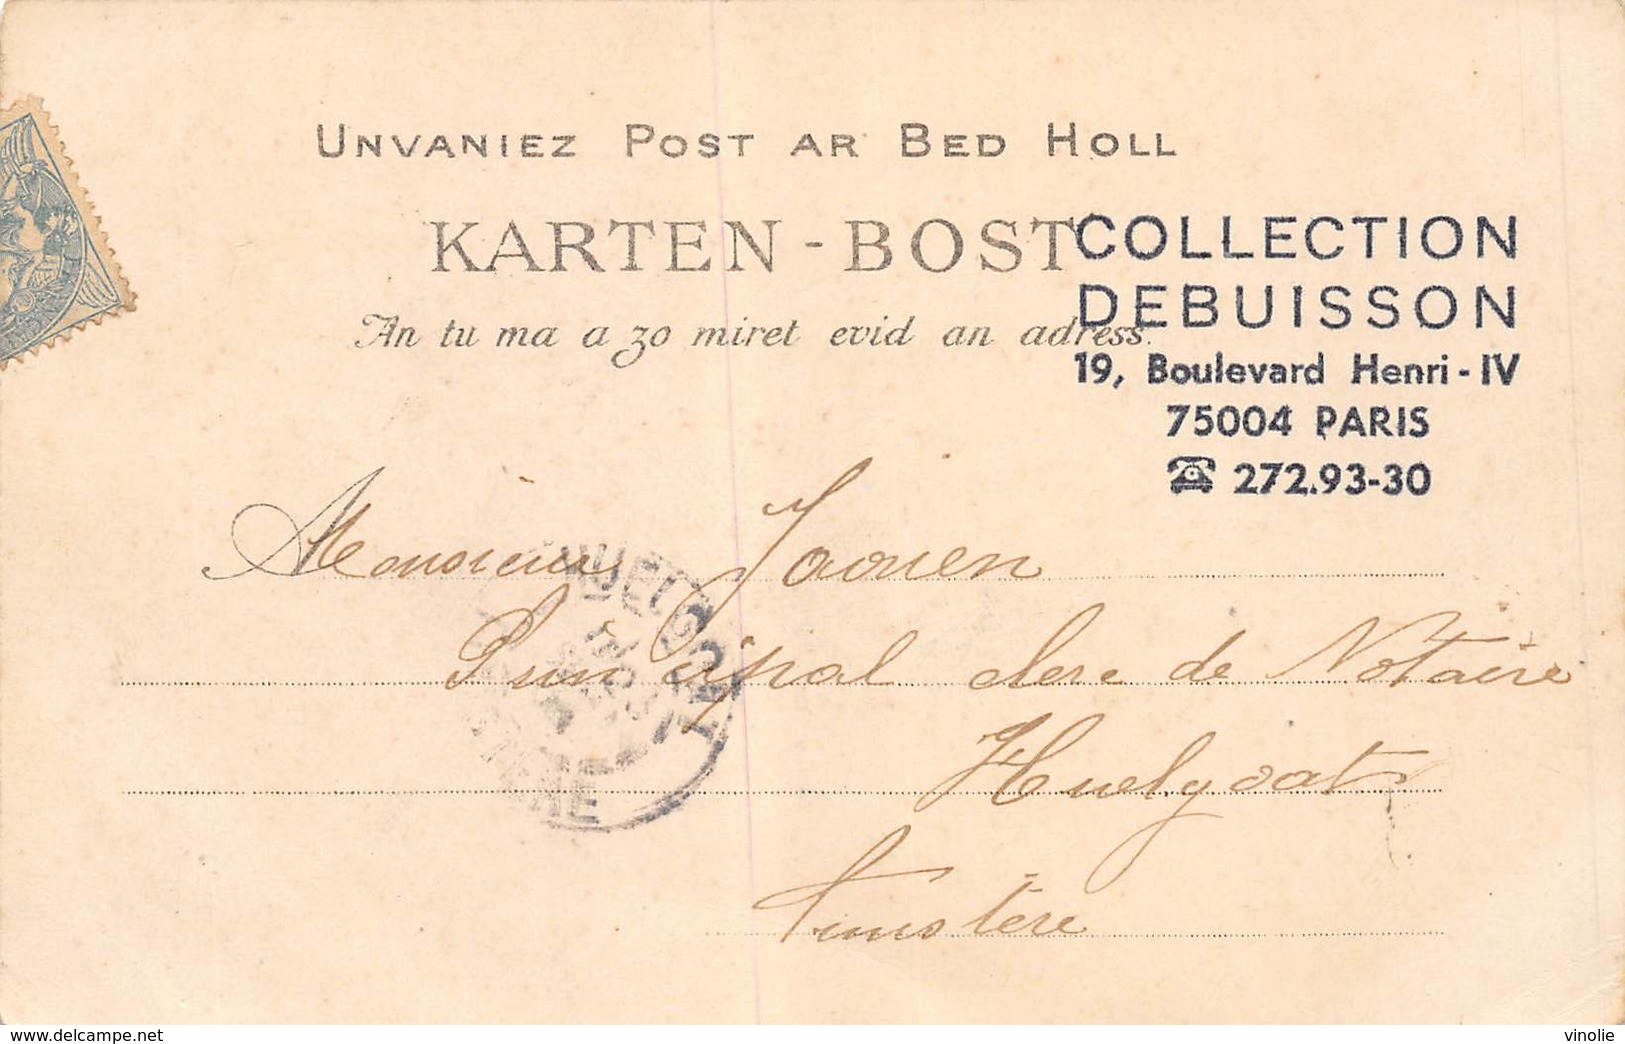 UNVANIEZ POST AR BED HOLL
KARTEN-BOST
An tu ma a zo miret evid an adress.
COLLECTION
DEBUISSON
19, Boulevard Henri-IV
75004 PARIS
☎ 272.93-30
Monsieur Jaouen
Principal clerc de Notaire
Huelgoat
Finistère
HUELGOAT
delcampe.net
vinolie